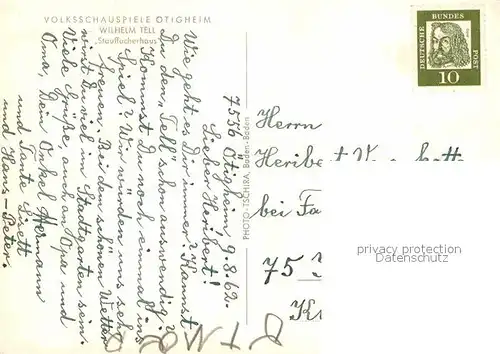 VOLKSSCHAUSPIELE ÖTIGHEIM
WILHELM TELL
„Stauffacherhaus“
7556 Ötigheim 9.8.62.
Lieber Heribert!
Wie geht es Dir immer? Kannst
Du den „Tell“ schon auswendig?
Kommst Du noch einmal ins
Spiel? Wir würden uns sehr
freuen. Bei dem schönen Wetter
wirst Du viel im Stadtgarten sein.
Viele Grüße, auch an Opa und
Oma, Dein Onkel Hermann
und Tante Lisett
und Hans-Peter.
PHOTO-TSCHIRA, Baden-Baden
DEUTSCHE BUNDES POST
10
Herrn
Heribert
bei Fa
75
privacy protection
Datenschutz